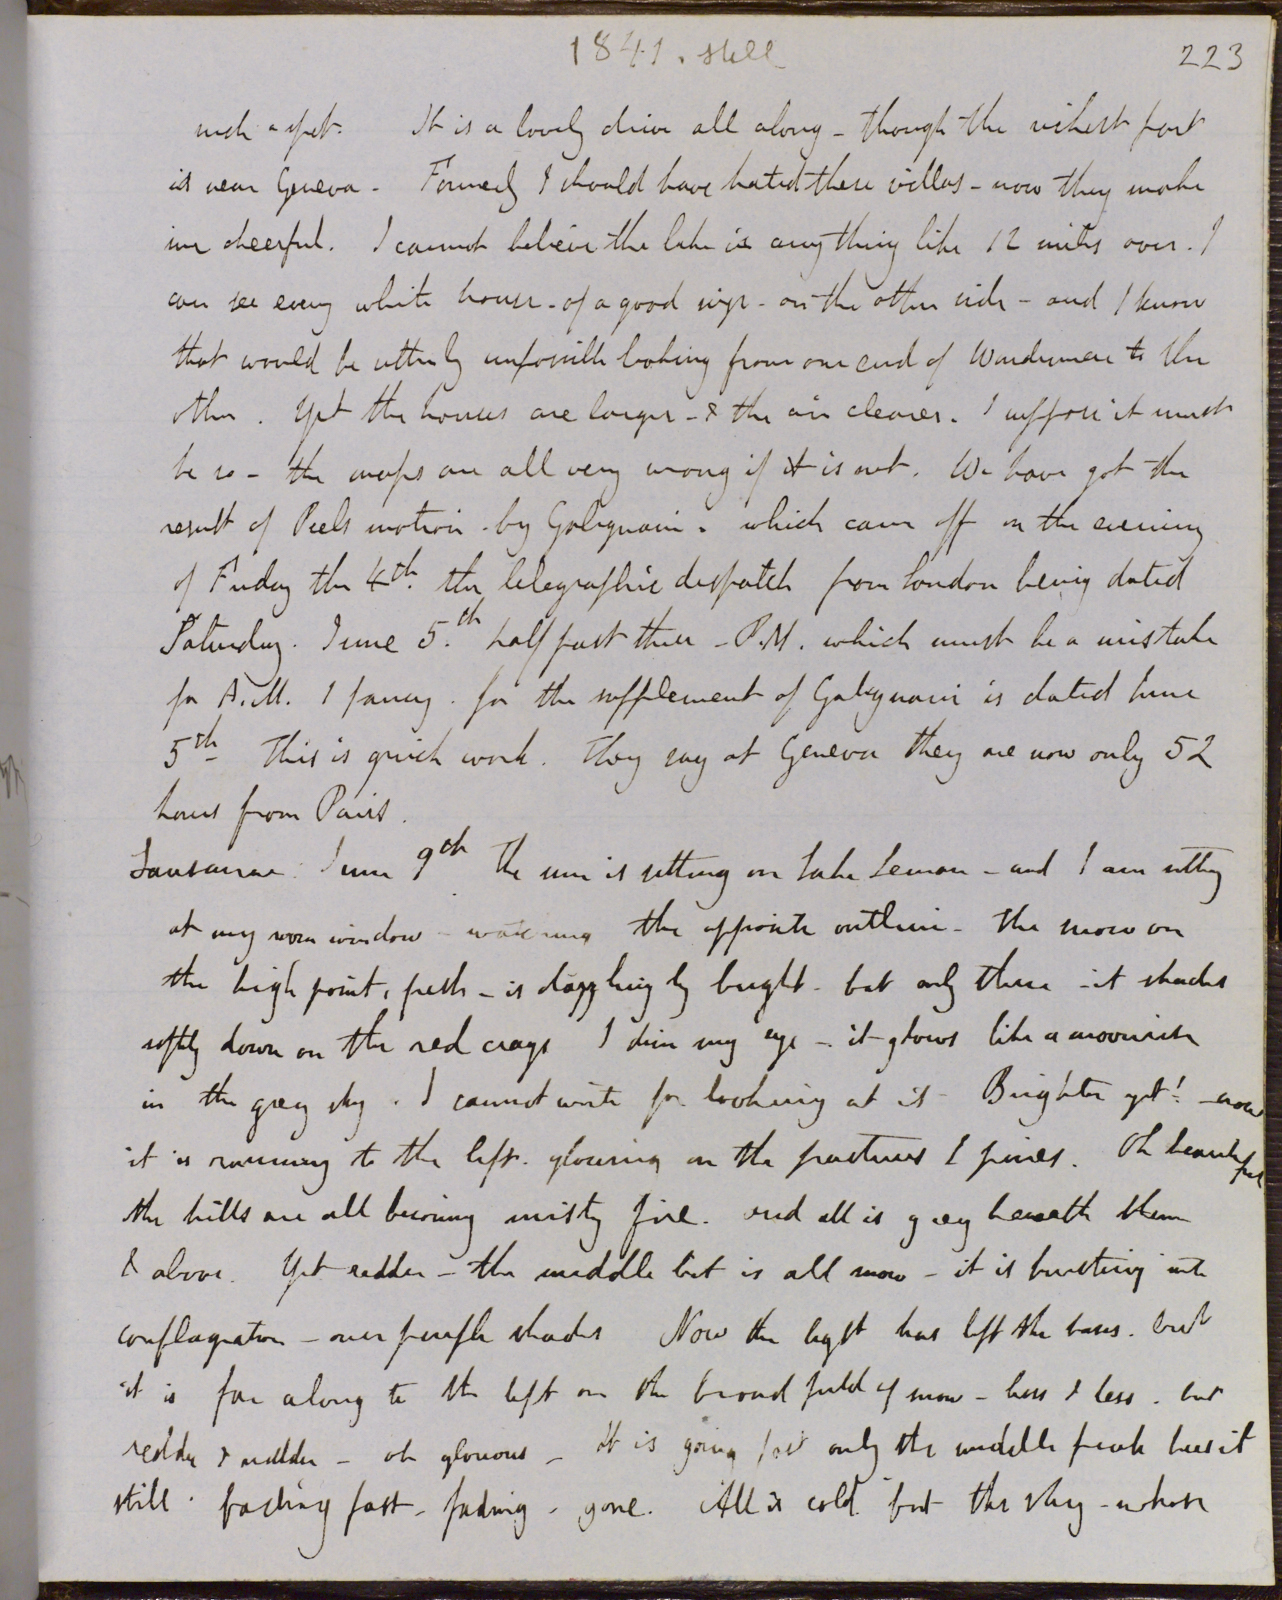 1841. still
223
such a spot. It is a lovely drive all along - though the richest part
is near Geneva - Formerly I should have hated these villas - now they make
me cheerful. I cannot believe the lake is anything like 12 miles over. I
can see every white house - of a good size - on the other side - and I know
that would be utterly impossible looking from one end of Windermere to the
other. Yet the houses are larger - & the air clearer. I suppose it must
be so - the maps are all very wrong if it is not. We have got the
result of Peels motion - by Galignani - which came off on the evening
of Friday the 4th. the telegraphic despatch from London being dated
Saturday. June 5.th half past three - P.M. which must be a mistake
for A.M. I fancy. for the supplement of Galignani is dated June
5th This is quick work. They say at Geneva they are now only 52
hours from Paris.
Lausanne. June 9th. The sun is setting on Lake Leman - and I am sitting
at my room window - watching the opposite outline - the snow on
the high point, peak - is dazzlingly bright - but only there - it shades
softly down on the red crags I dim my eye - it glows like a moonrise
in the grey sky. I cannot write for looking at it - Brighter yet! - now
it is running to the left. glowing on the pastures & pines. Oh beautiful
the hills are all burning misty fire. and all is grey beneath them
& above. Yet redder - the middle bit is all snow - it is bursting into
conflagration - over purple shades Now the light has left the bases. but
it is far along to the left on the broad field of snow - less & less. but
redder & redder - oh glorious - It is going fast only the middle peak has it
still. fading fast - fading - gone. All is cold but the sky - whose